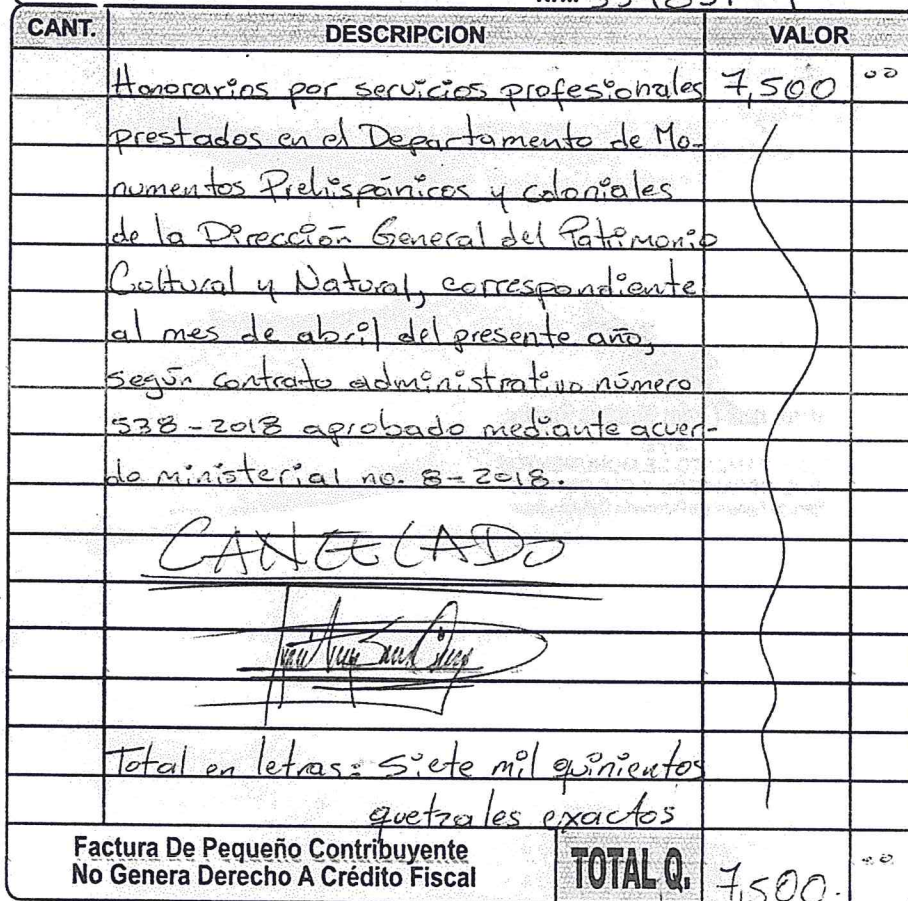 CANT. DESCRIPCION VALOR
Honorarios por servicios profesionales 7,500 00
prestados en el Departamento de Mo-
numentos Prehispánicos y coloniales
de la Dirección General del Patrimonio
Cultural y Natural, correspondiente
al mes de abril del presente año,
según contrato administrativo número
538-2018 aprobado mediante acuer-
do ministerial no. 8-2018.
CANCELADO
Total en letras: Siete mil quinientos
quetzales exactos
Factura De Pequeño Contribuyente
No Genera Derecho A Crédito Fiscal
TOTAL Q. 7,500. 00